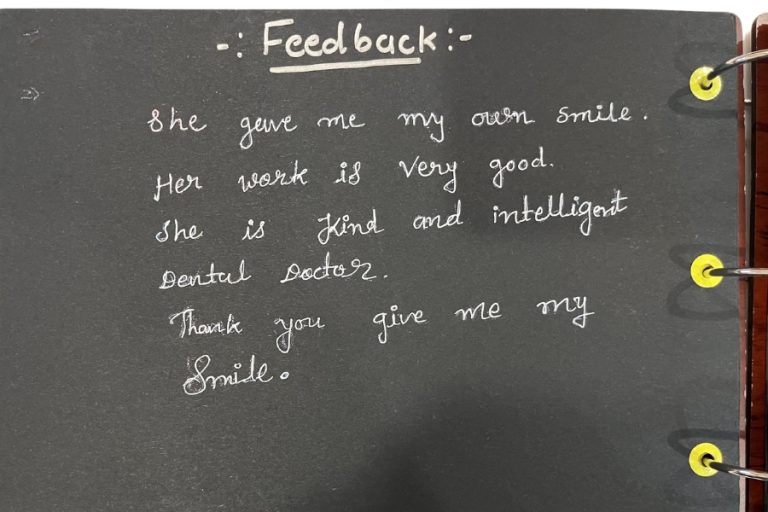 -: Feedback :-
She gave me my own smile.
Her work is very good.
She is kind and intelligent
Dental Doctor.
Thank you give me my
Smile.